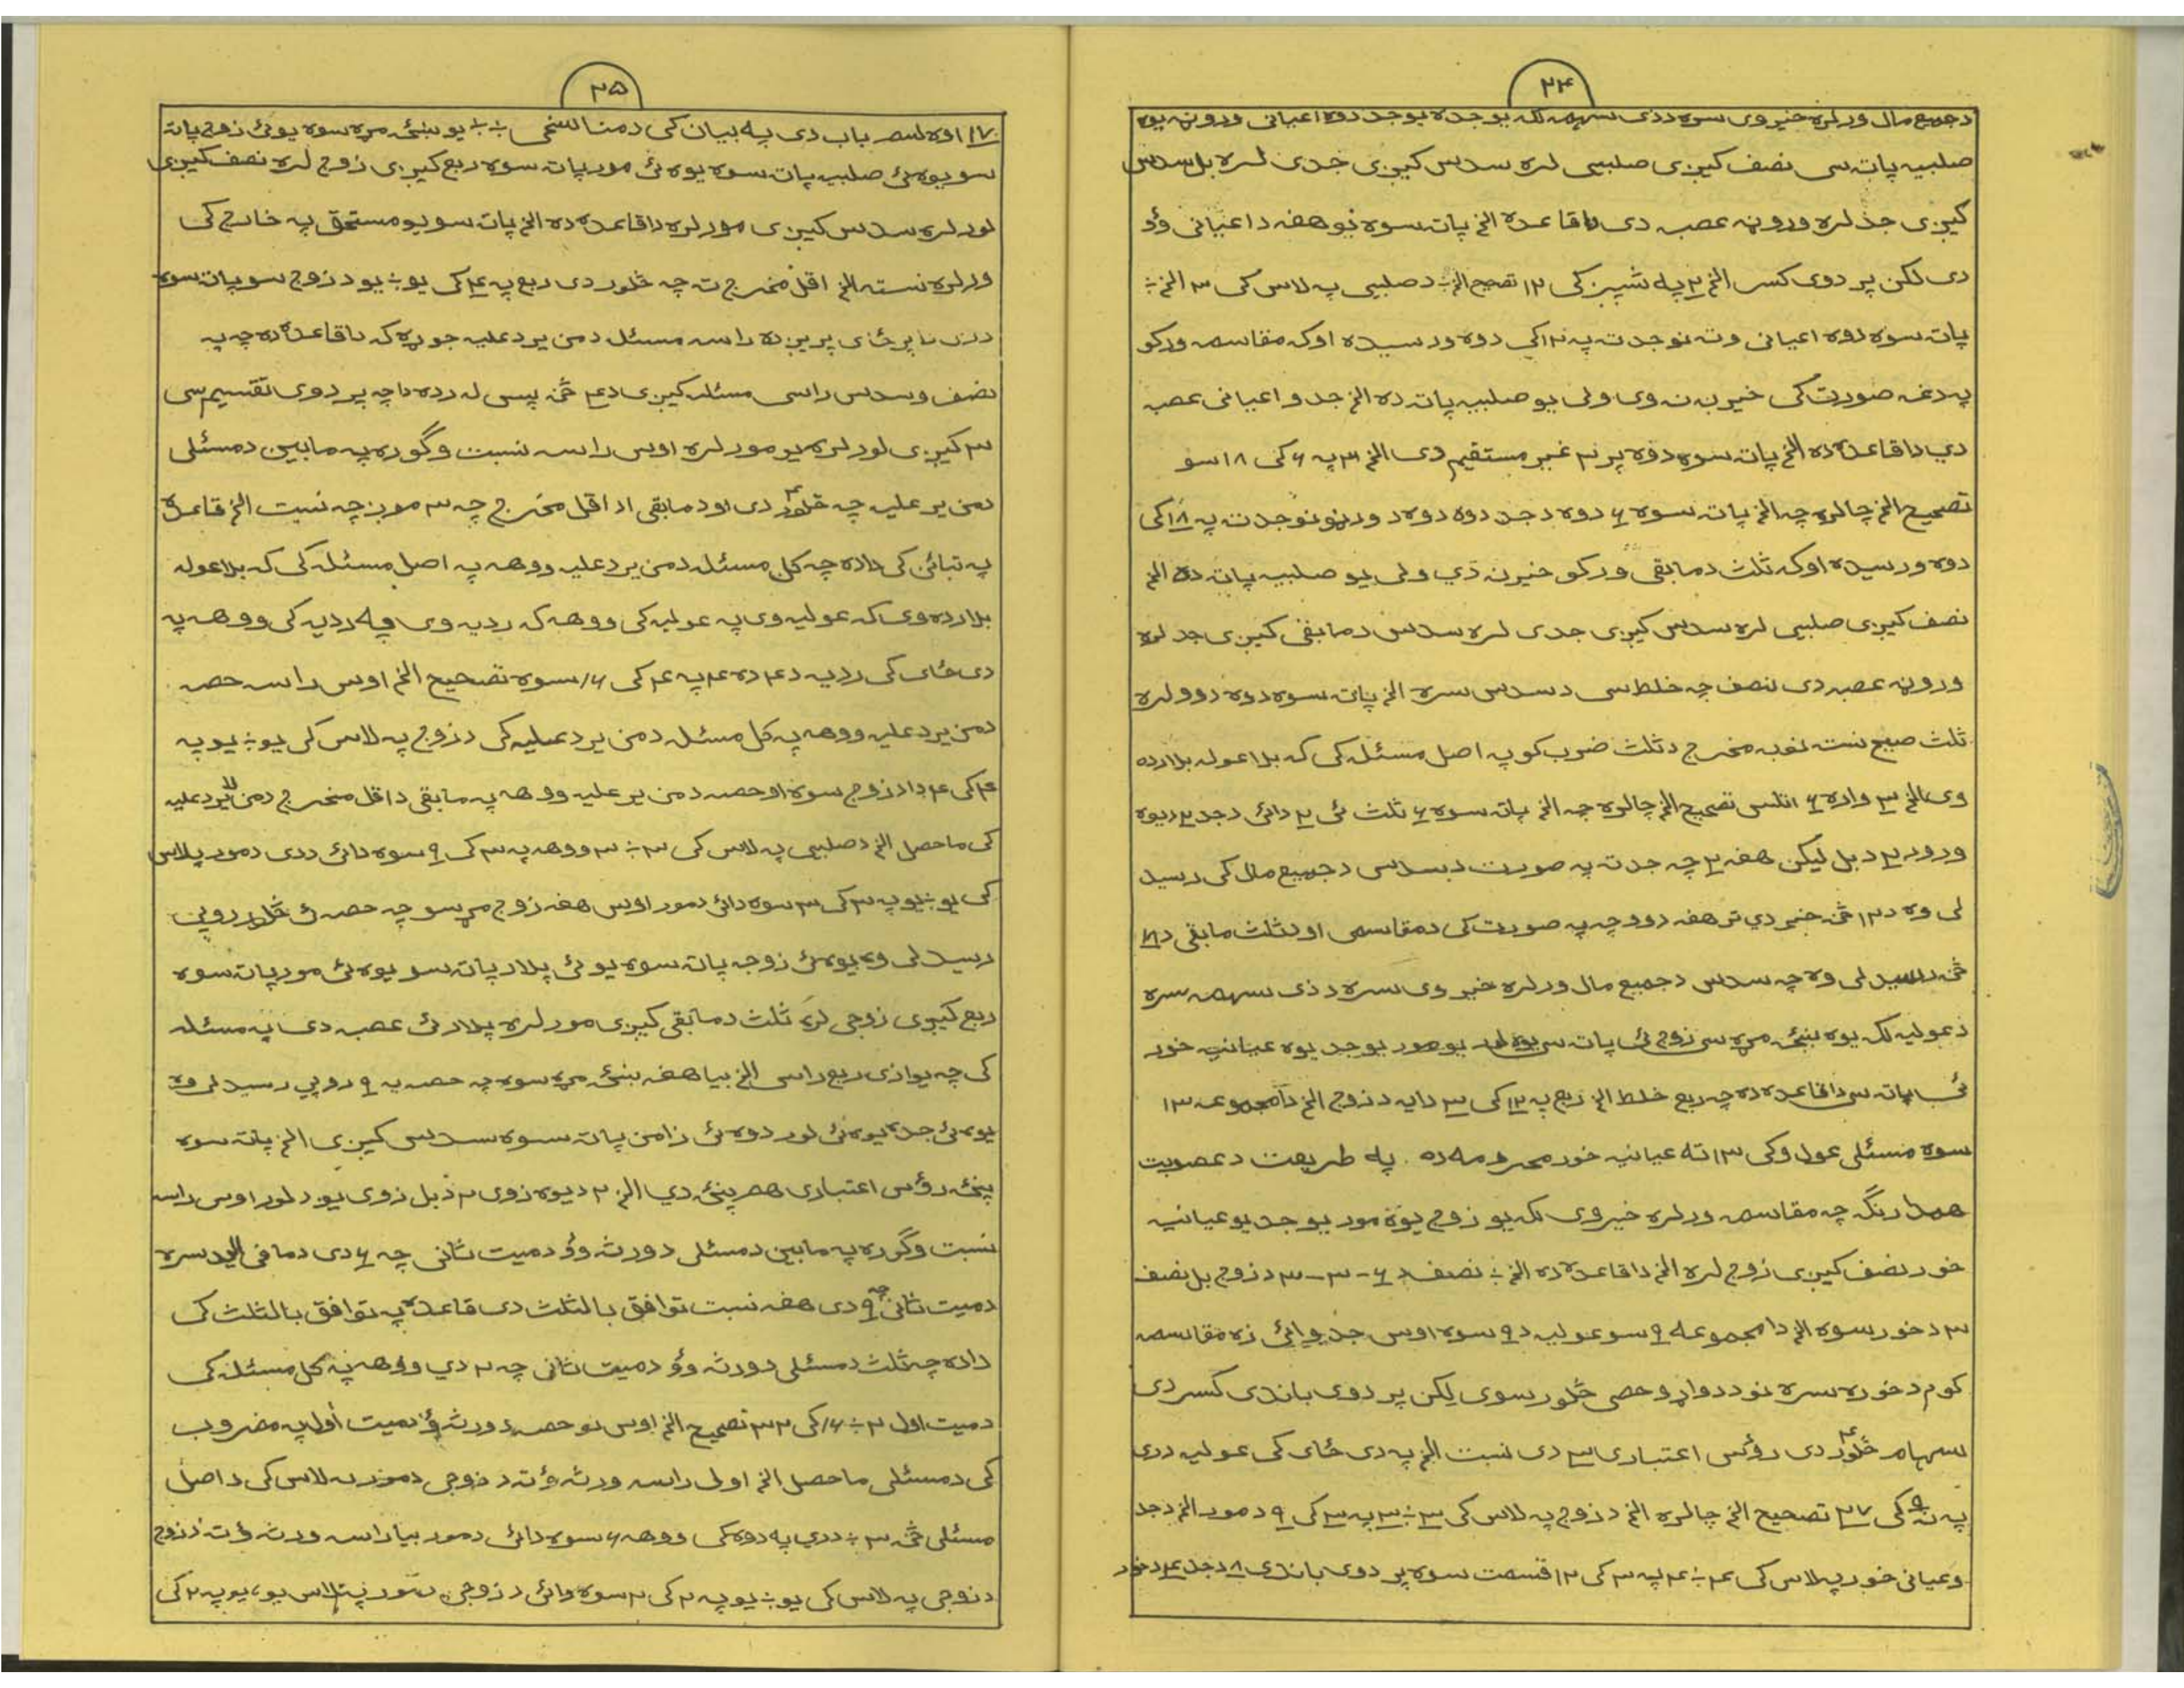 ۲۴
د جمیع مال ورلره خیر وی سره د ذی سهمه لکه یو جده یو جد دوه اعیانی ورونه یوه
صلبیه پاته سی نصف کیږی صلبیی لره سدس کیږی جدی لره بل سدس
کیږی جد لره ورونه عصبه دی داقاعده الخ پاته سوه نو هغه د اعیانی وؤ
دی لکن پر دوی کسر الخ ۲ په شپږ کی ۱۲ تصحیح الخ ÷ د صلبیی په لاس کی ۳ الخ ÷
پاته سوه دوه اعیانی وته نو جد ته په ۱۲ کی دوه ورسیده اوکه مقاسمه ورکو
په دغه صورت کی خیر به نه وی ولی یو صلبیه پاته ده الخ جد و اعیانی عصبه
دي داقاعده ده الخ پاته سوه دوه پر ۳ غیر مستقیم دی الخ ۳ په ۶ کی ۱۸ سو
تصحیح الخ چالره چه الخ پاته سوه ۶ دوه د جد دوه دوه د ورونو نو جد ته په ۱۸ کی
دوه ورسیده اوکه ثلث دمابقی ورکو خیر نه دي ولی یو صلبیه پاته ده الخ
نصف کیږی صلبیی لره سدس کیږی جدی لره سدس دمابقی کیږی جد لره
ورونه عصبه دی نصف چه خلط سی د سدس سره الخ پاته سوه دوه دوو لره
ثلث صیح نسته نو به مخرج د ثلث ضرب کو په اصل مسئله کی که بلاعوله بلارده
وی الخ ۳ واره ۶ اتلس تصحیح الخ چالره چه الخ پاته سوه ۶ ثلث ئی ۲ دائی د جد ۲ د یوه
ورور ۲ د بل لیکن هغه ۲ چه جد ته په صورت د سدس د جمیع مال کی رسید
لی وه د ۱۲ څخه خیر دي تر هغه دوو چه په صورت کی د مقاسمی او د ثلث مابقی د ۱۸
څخه رسید لی وه چه سدس د جمیع مال ورلره خیر وی سره د ذی سهمه سره
د عولیه لکه یوه ښځه مړه سی زوج ئی پاته سی یوه لور یو مور یو جد یوه عیانیه خور
ئی پاته سی داقاعده ده چه ربع خلط الخ ربع په ۱۲ کی ۳ دایه د زوج الخ دامجموعه ۱۳
سوه مسئلی عول وکی ۱۳ ته عیانیه خور محرومه ده په طریقت د عصوبت
همدا رنگه چه مقاسمه ورلره خیر وی لکه یو زوج یوه مور یو جد یو عیانیه
خور نصف کیږی زوج لره الخ داقاعده ده الخ ÷ نصف د ۶ - ۳ - ۳ د زوج بل نصف
۳ د خور سوه الخ دا مجموعه ۹ سو عولیه د ۹ سوه اوس جد وائی زه مقاسمه
کوم د خوره سره نو د دواړو حصی څلور سوی لکن پر دوی باندی کسر دی
سهام څلور دی رؤس اعتباری ۳ دی نسبت الخ په دی ځای کی عولیه دری
په نه ۹ کی ۲۷ تصحیح الخ چالره الخ د زوج په لاس کی ۳ ÷ ۳ په ۳ کی ۹ د مور الخ د جد
وعیانی خور په لاس کی ۴ ÷ ۴ په ۳ کی ۱۲ قسمت سوه پر دوی باندی ۸ د جد ۴ د خور
۲۵
۱۷ اوه لسم باب دی په بیان کی د مناسخی ÷ ÷ یو ښځه مړه سوه یو ئی زوج پاته
سو یوه ئی صلبیه پاته سوه یوه ئی مور پاته سوه ربع کیږی زوج لره نصف کیږی
لور لره سدس کیږی مور لره داقاعده ده الخ پاته سو یو مستحق په خارج کی
ورلره نسته الخ اقل مخرج ته چه څلور دی ربع په ۴ کی یو ÷ یو د زوج سو پاته سوه
دری دا پر ځای پریږده راسه مسئله د من یرد علیه جوړه که داقاعده ده چه په
نصف وسدس راسی مسئله کیږی د ۶ څخه پیس له رده دا چه پر دوی تقسیم سی
۳ کیږی لور لره یو مور لره اوس راسه نسبت وگوره په مابین د مسئلی
دمن یر علیه چه څلور دی او د مابقی اد اقل مخرج چه ۳ مو ږ چه نسبت الخ قاعده
په تبائن کی داده چه کل مسئله د من یرد علیه ووهه په اصل مسئله کی که بلاعوله
بلارده وی که عولیه وی په عولیه کی ووهه که ردیه وی په ردیه کی ووهه په
دی ځای کی ردیه د ۴ ده ۴ په ۴ کی ۱۶ سوه تصحیح الخ اوس راسه حصه
دمن یرد علیه ووهه په کل مسئله د من یرد علیه کی د زوج په لاس کی یو ÷ یو په
۴ کی ۴ دا د زوج سوه او حصه د من یر علیه ووهه په مابقی د اقل مخرج دمن لا یرد علیه
کی ماحصل الخ د صلبیی په لاس کی ۳ ÷ ۳ ووهه په ۳ کی ۹ سوه دائی ددی د مور په لاس
کی یو ÷ یو په ۳ کی ۳ سوه دائی د مور اوس هغه زوج مړ سو چه حصه ئ څلور روپی
رسید لی وه یوه ئی زوجه پاته سوه یو ئی پلار پاته سو یوه ئی مور پاته سوه
ربع کیږی زوجی لره ثلث دمابقی کیږی مور لره پلار ئی عصبه دی په مسئله
کی چه یوازی ربع راسی الخ بیا هغه ښځه مړه سوه چه حصه یه ۹ روپي رسید لی وه
یوه ئی جده یوه ئی لور دوه ئی زامن پاته سوه سدس کیږی الخ پاته سوه
پنځه رؤس اعتباری هم پنځه دي الخ ۲ د یوه زوی ۲ د بل زوی یو د لور اوس راسه
نسبت وگوره په مابین د مسئلی د ورثه وؤ د میت ثانی چه ۶ دی د مافی الید سره
د میت ثانی چه ۹ دی هغه نسبت توافق بالثلث دی قاعده په توافق بالثلث کی
داده چه ثلث د مسئلی د ورثه وؤ د میت ثانی چه ۲ دي ووهه په کل مسئله کی
د میت اول ۲ ÷ ۱۶ کی ۳۲ تصحیح الخ اوس نو حصه د ورثه ؤ د میت اول په مضروب
کی د مسئلی ماحصل الخ اولی راسه ورثه ؤ ته د زوجی د مور په لاس کی د اصل
مسئلی څخه ۳ ÷ دری په دوه کی ووهه ۶ سوه دائی د مور بیا راسه ورثه ؤ ته د زوج
د زوجی په لاس کی یو ÷ یو په ۲ کی ۲ سوه دائی د زوجی د مور په لاس یو، یو په ۲ کی